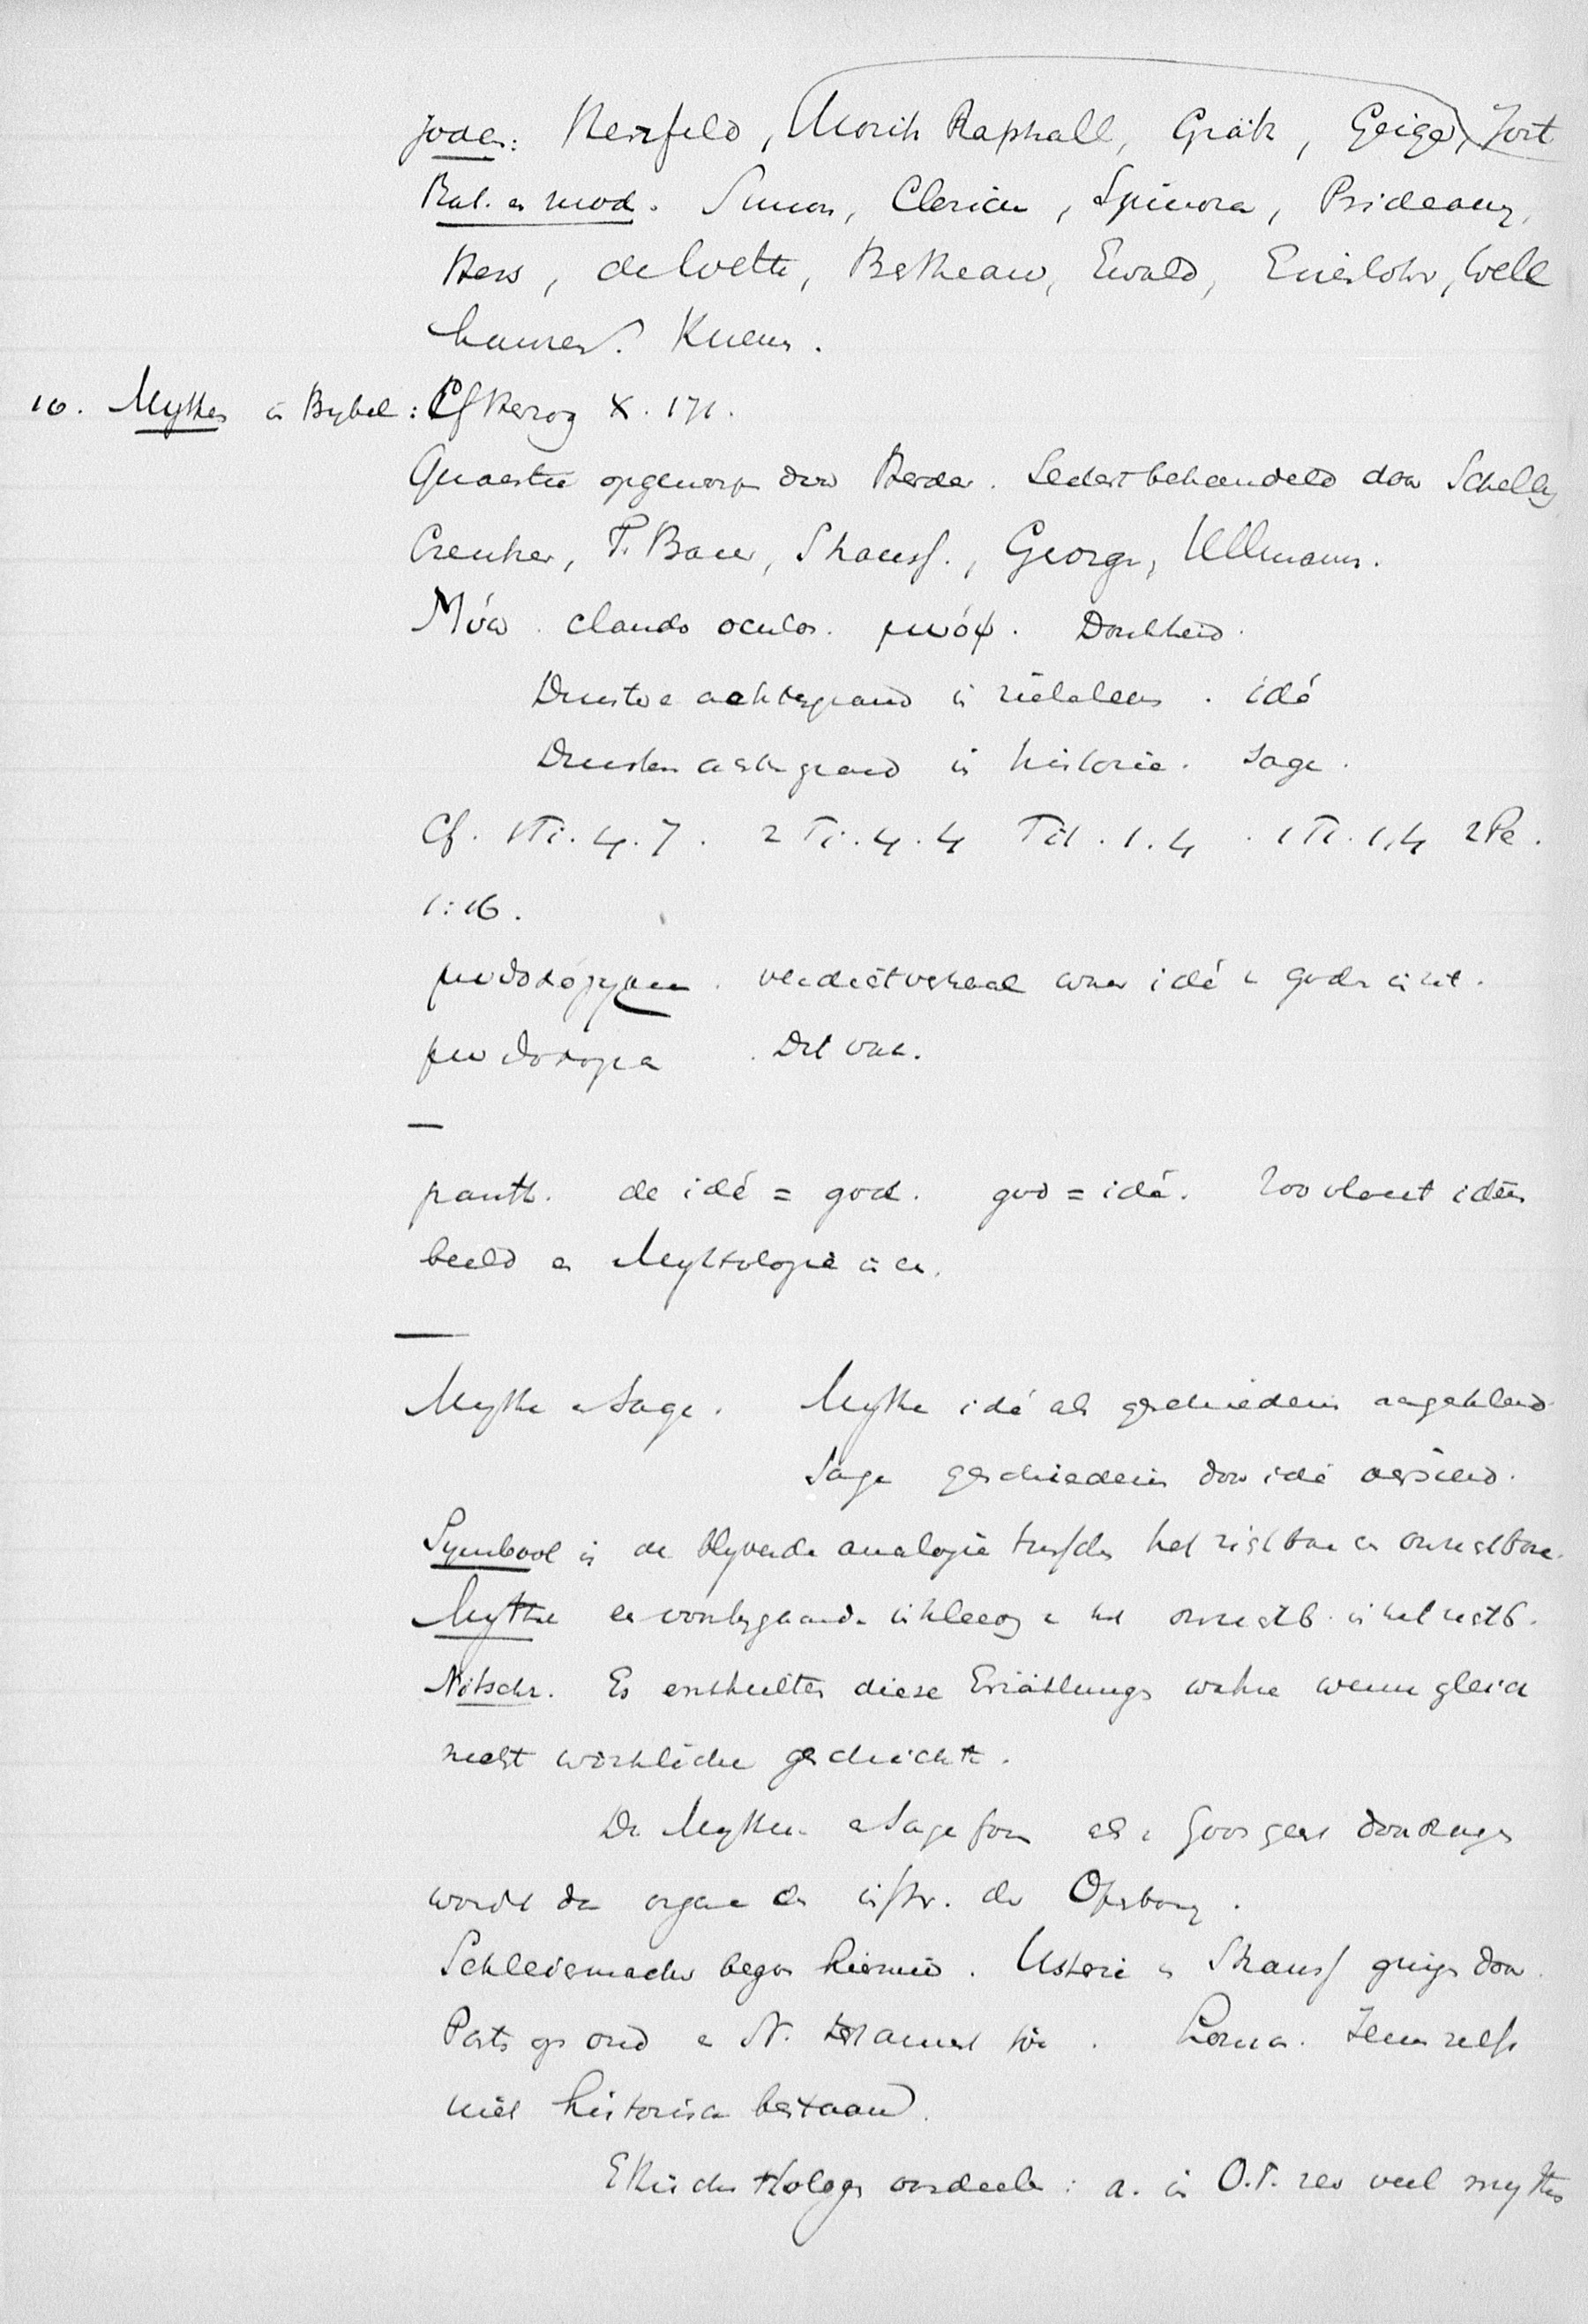 Joden: Herzfeld, Morits Raphall, Grätz, Geiger, Jost
Rat. en mod. Simon, Clericus, Spinoza, Prideaux,
Hess, de Wette, Bertheau, Ewald, Eisenlohr, Well
hausen. Kuenen.
10. Mythen in Bybel: Cf Herzog X. 171.
Quaestie opgeworpen door Herder. Sedert behandeld door Schelling
Creuzer, F. Baur, Strauss, George, Ullmann.
Μύω. claudo oculos. μυόψ. Donkerheid.
Duistere achtergrond in zieleleven. idé
Duistere achtergrond in historie. Sage.
Cf. 1 Ti. 4. 7. 2 Ti. 4. 4 Tit. 1. 4. 1 Ti. 1,4 2 Pe.
1:16.
verdicht verhaal waar idé in zit.
μυθολογια. Dit van.
panth. de idé = god. god = idé. Zoo vloeit idée
beeld en Mythologie in een.
Mythe en Sage. Mythe idé als geschiedenis aangekleed
Sage geschiedenis door idé versierd.
Symbool is de blyvende analogie tusschen het zichtbare en onzichtbare.
Mythe de voorbygaande inkleeding v. het onzichtb. in het zichtb.
Nitsch. Es enthielten diese Erzählungen wahre wenn gleich
nicht wirkliche geschichte.
De Mythen en Sage form als v. Gods geest doordrongen
wordt dan organe der instr. der Openbaring.
Schleiermacher begon hiermeê. Usteri en Strauss gingen door.
Parts op oud en N. Testament toe. Jezus zelf
niet historisch bestaan.
Ethische theologen oordeelen: a. in O.T. zeer veel mythen